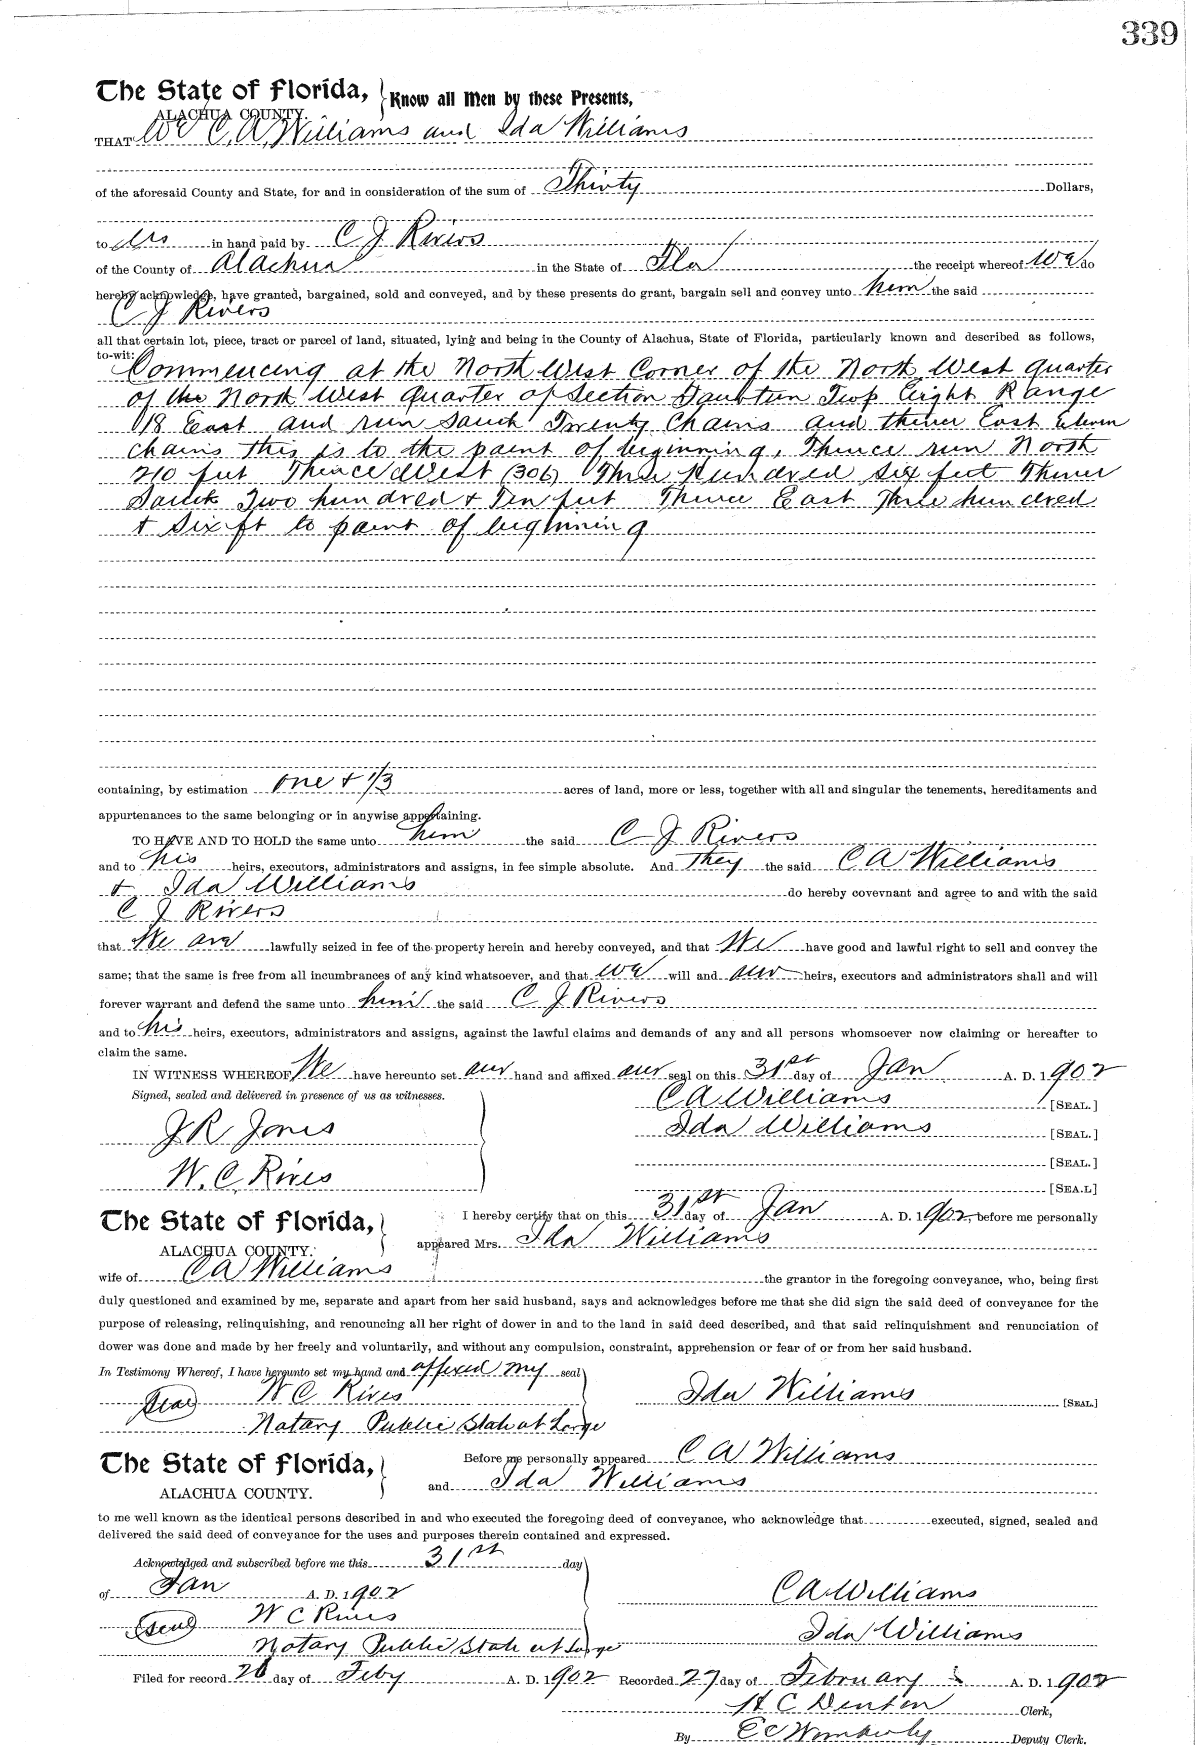 339
The State of Florida, Know all Men by these Presents,
ALACHUA COUNTY.
THAT We C. A. Williams and Ida Williams
of the aforesaid County and State, for and in consideration of the sum of Thirty Dollars,
to Us in hand paid by C J Rivers
of the County of Alachua in the State of Fla the receipt whereof we do
hereby acknowledge, have granted, bargained, sold and conveyed, and by these presents do grant, bargain sell and convey unto him the said
C J Rivers
all that certain lot, piece, tract or parcel of land, situated, lying and being in the County of Alachua, State of Florida, particularly known and described as follows,
to-wit:
Commencing at the North West Corner of the North West quarter
of the North West Quarter of Section Twp Eight Range
18 East and run South Twenty Chains and thence East Eleven
chains this is to the point of beginning, Thence run North
210 feet Thence West (306) Three Hundred six feet Thence
South Two hundred & Ten feet Thence East Three hundred
& Six ft to point of beginning
containing, by estimation one & 1/3 acres of land, more or less, together with all and singular the tenements, hereditaments and
appurtenances to the same belonging or in anywise appertaining.
TO HAVE AND TO HOLD the same unto him the said C J Rivers
and to his heirs, executors, administrators and assigns, in fee simple absolute. And They the said C A Williams
& Ida Williams do hereby covevnant and agree to and with the said
C J Rivers
that We are lawfully seized in fee of the property herein and hereby conveyed, and that We have good and lawful right to sell and convey the
same; that the same is free from all incumbrances of any kind whatsoever, and that we will and our heirs, executors and administrators shall and will
forever warrant and defend the same unto him the said C J Rivers
and to his heirs, executors, administrators and assigns, against the lawful claims and demands of any and all persons whomsoever now claiming or hereafter to
claim the same.
IN WITNESS WHEREOF We have hereunto set our hand and affixed our seal on this 31st day of Jan A. D. 1902
Signed, sealed and delivered in presence of us as witnesses. C A Williams [SEAL.]
J R Jones Ida Williams [SEAL.]
[SEAL.]
W. C. Rives [SEA.L]
The State of Florida, I hereby certify that on this 31st day of Jan A. D. 1902, before me personally
ALACHUA COUNTY. appeared Mrs. Ida Williams
wife of C A Williams the grantor in the foregoing conveyance, who, being first
duly questioned and examined by me, separate and apart from her said husband, says and acknowledges before me that she did sign the said deed of conveyance for the
purpose of releasing, relinquishing, and renouncing all her right of dower in and to the land in said deed described, and that said relinquishment and renunciation of
dower was done and made by her freely and voluntarily, and without any compulsion, constraint, apprehension or fear of or from her said husband.
In Testimony Whereof, I have hereunto set my hand and affixed my seal
Seal W C Rives Ida Williams [SEAL.]
Notary Public State at Large
The State of Florida, Before me personally appeared C A Williams
ALACHUA COUNTY. and Ida Williams
to me well known as the identical persons described in and who executed the foregoing deed of conveyance, who acknowledge that executed, signed, sealed and
delivered the said deed of conveyance for the uses and purposes therein contained and expressed.
Acknowledged and subscribed before me this 31st day
of Jan A. D. 1902 C A Williams
Seal W C Rives Ida Williams
Notary Public State at Large
Filed for record 26 day of Feby A. D. 1902 Recorded 27 day of February A. D. 1902
H C Denton Clerk,
By E C Wimberly Deputy Clerk.